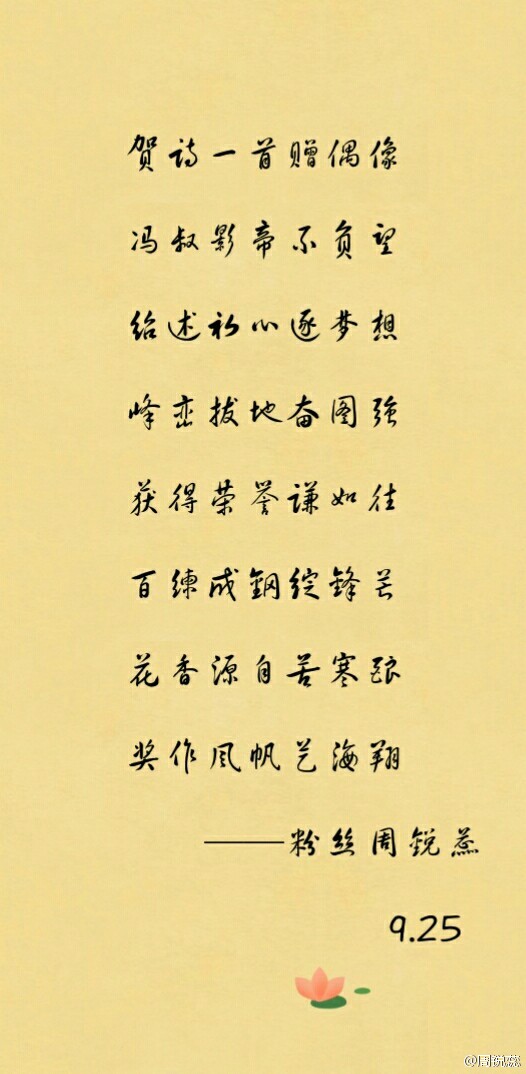 贺诗一首赠偶像
冯叔影帝不负望
绍述初心逐梦想
峰峦拔地奋图强
获得荣誉谦如往
百练成钢绽锋芒
花香源自苦寒酿
奖作风帆艺海翔
——粉丝周锐蕊
9.25
@周锐蕊